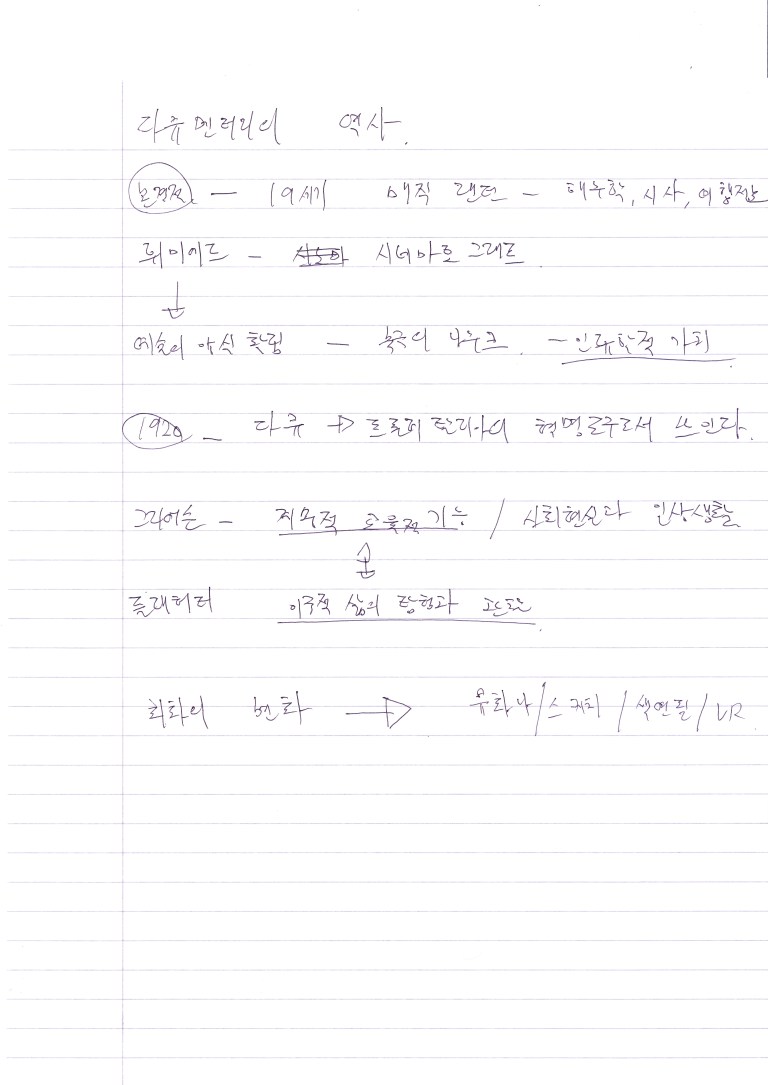 다큐멘터리의 역사.
본격적 — 19세기 매직 랜턴 — 해부학, 시사, 여행
뤼미에르 — 시네마토그래프
예술의 양식 확립 — 북극의 나누크 — 인류학적 가치
1920 — 다큐 → 프롤레타리아의 혁명도구로서 쓰인다.
그리어슨 — 적 교육적 기능 / 사회현실과 일상생활
플래허티 이국적 삶의 탐험과
회화의 변화 → 유화나/스케치/색연필/VR